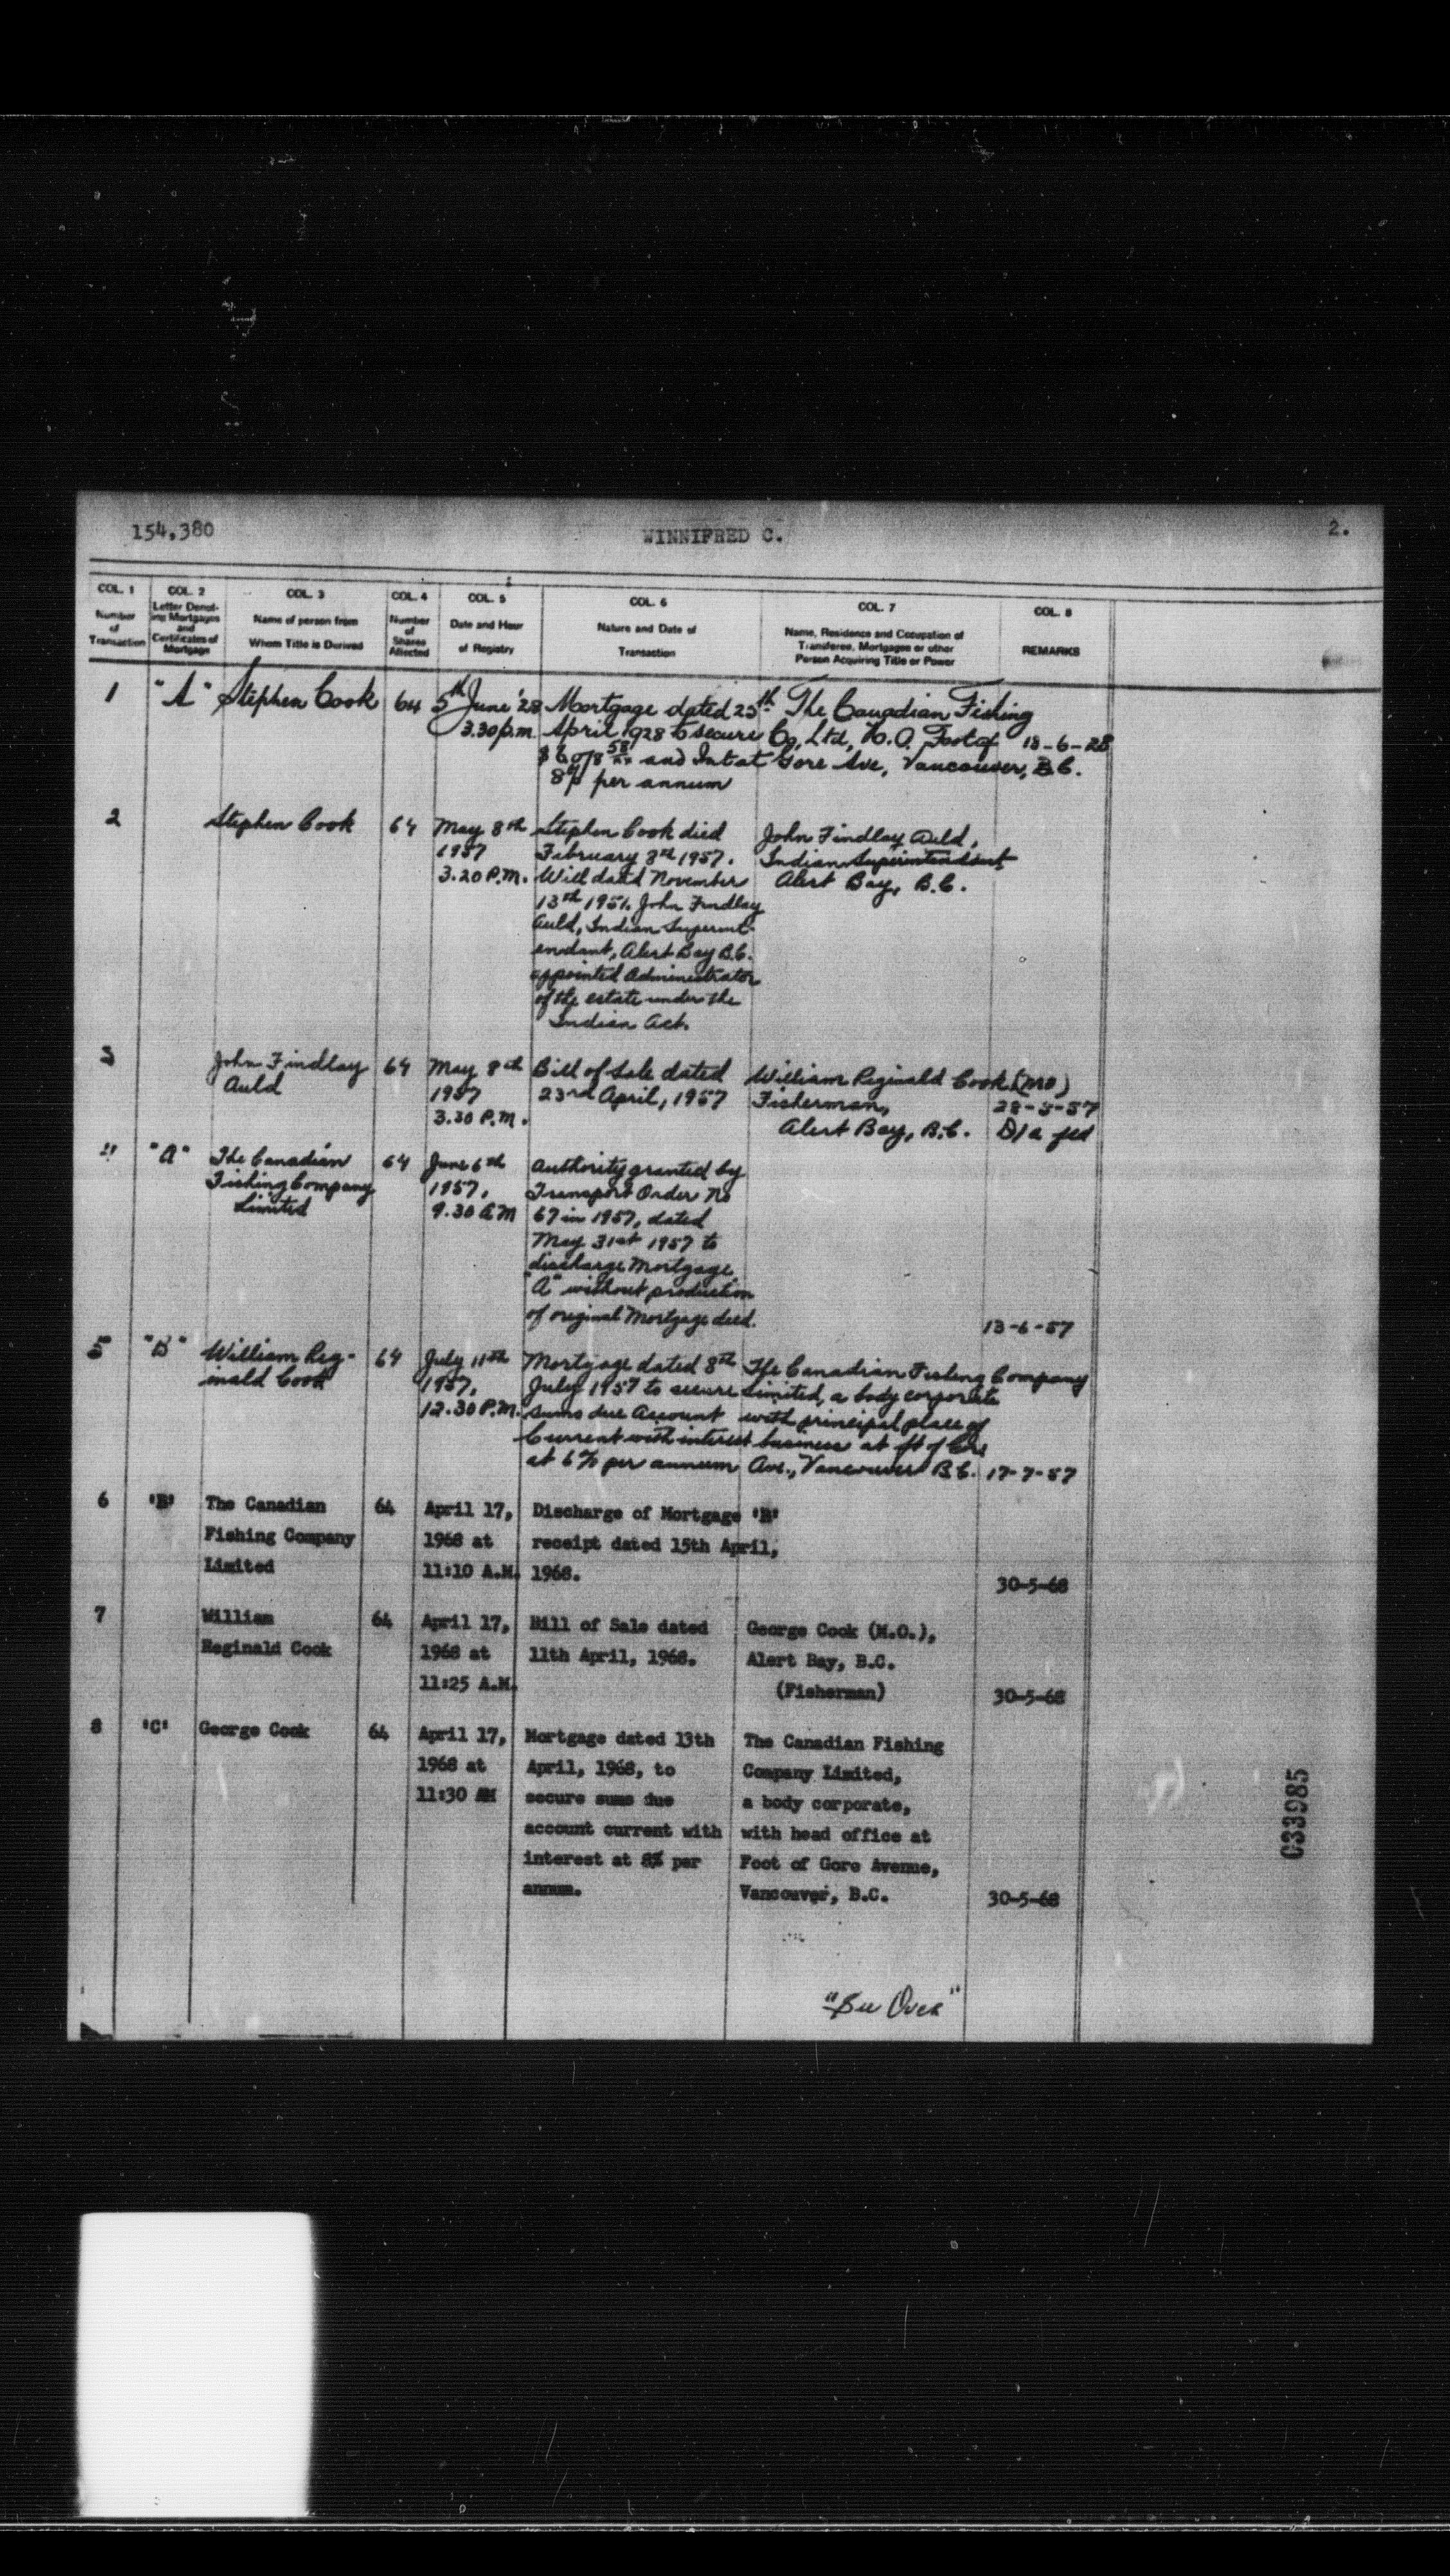 154,380 WINNIFRED C. 2.
COL. 1 COL. 2 COL. 3 COL. 4 COL. 5 COL. 6 COL. 7 COL. 8
Number of Transaction
Letter Denoting Mortgages and Certificates of Mortgage
Name of person from Whom Title is Derived
Number of Shares Affected
Date and Hour of Registry
Nature and Date of Transaction
Name, Residence and Occupation of Transferee, Mortgagee or other Person Acquiring Title or Power
REMARKS
1 "A" Stephen Cook 64 5th June '28 Mortgage dated 25th The Canadian Fishing
3.30 p.m. April 1928 to secure Co, Ltd, H.O. Foot of 18-6-28
and Int at Gore Ave, Vancouver, B.C.
8% per annum
2 Stephen Cook 64 May 8th Stephen Cook died John Findlay Auld,
1957 February 8th 1957. Indian Superintendent,
3.20 P.M. Will dated November Alert Bay, B.C.
13th 1951. John Findlay
Auld, Indian Superint-
endant, Alert Bay B.C.
appointed Administrator
of the estate under the
Indian Act.
3 John Findlay 64 May 8th Bill of Sale dated William Reginald Cook (MO)
Auld 1957 23rd April, 1957 Fisherman, 28-5-57
3.30 P.M. Alert Bay, B.C.
"A" The Canadian 64 June 6th Authority granted by
Fishing Company 1957, Transport Order No
Limited 9.30 A.M 67 in 1957, dated
May 31st 1957 to
discharge Mortgage
"A" without production
of original Mortgage deed. 13-6-57
5 "B" William Reg- 64 July 11th Mortgage dated 8th The Canadian Fishing Company
inald Cook 1957, July 1957 to secure Limited, a body corporate
12.30 P.M. sums due Account with principal place of
Current with interest business at ft of Gore
at 6% per annum Ave., Vancouver B.C. 17-7-57
6 'B' The Canadian 64 April 17, Discharge of Mortgage 'B'
Fishing Company 1968 at receipt dated 15th April,
Limited 11:10 A.M. 1968. 30-5-68
7 William 64 April 17, Bill of Sale dated George Cook (M.O.),
Reginald Cook 1968 at 11th April, 1968. Alert Bay, B.C.
11:25 A.M. (Fisherman) 30-5-68
8 'C' George Cook 64 April 17, Mortgage dated 13th The Canadian Fishing
1968 at April, 1968, to Company Limited,
11:30 AM secure sums due a body corporate,
account current with with head office at
interest at 8% per Foot of Gore Avenue,
annum. Vancouver, B.C. 30-5-68
033985
"See Over"